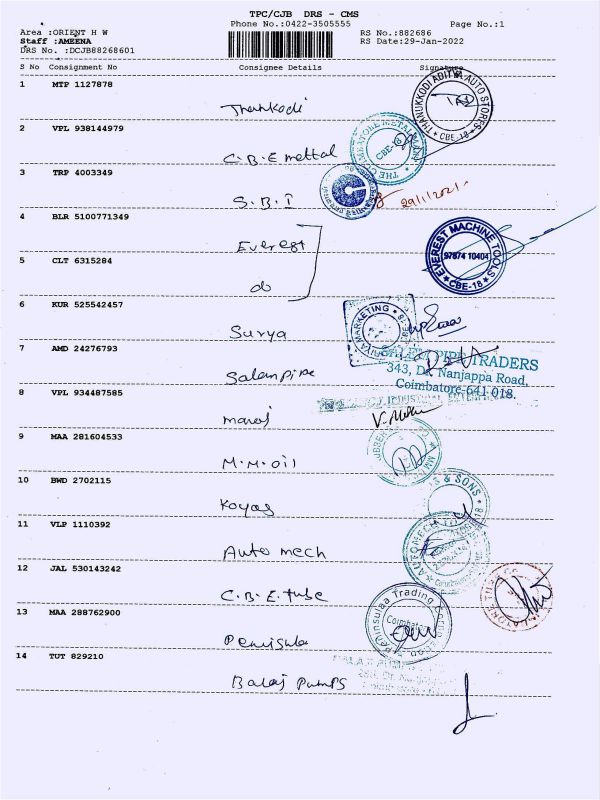 TPC/CJB DRS - CMS
Phone No.:0422-3505555 Page No.:1
Area :ORIENT H W RS No.:882686
Staff :AMEENA RS Date:29-Jan-2022
DRS No. :DCJB88268601
S No Consignment No Consignee Details Signature
1 MTP 1127878
Thankodi
THANUKKODI ADITYA AUTO STORES
* CBE-18 *
2 VPL 938144979
C.B.E mettal
THE COIMBATORE METAL MART
CBE-18
3 TRP 4003349
S.B.I
29/1/2021
4 BLR 5100771349
Everest
EVEREST MACHINE TOOLS
97874 10404
* CBE-18 *
5 CLT 6315284
do
6 KUR 525542457
Surya
SURYA MARKETING
7 AMD 24276793
Salempipe
SALEM PIPE TRADERS
343, Dr. Nanjappa Road,
Coimbatore-641 018.
8 VPL 934487585
manoj
INDUSTRIAL
9 MAA 281604533
M.M.oil
10 BWD 2702115
Koyas
& SONS
11 VLP 1110392
Auto mech
AUTOMECH
12 JAL 530143242
C.B.E.tube
13 MAA 288762900
Penisula
Peninsulaa Trading
Coimbatore
14 TUT 829210
Balaj Pumps